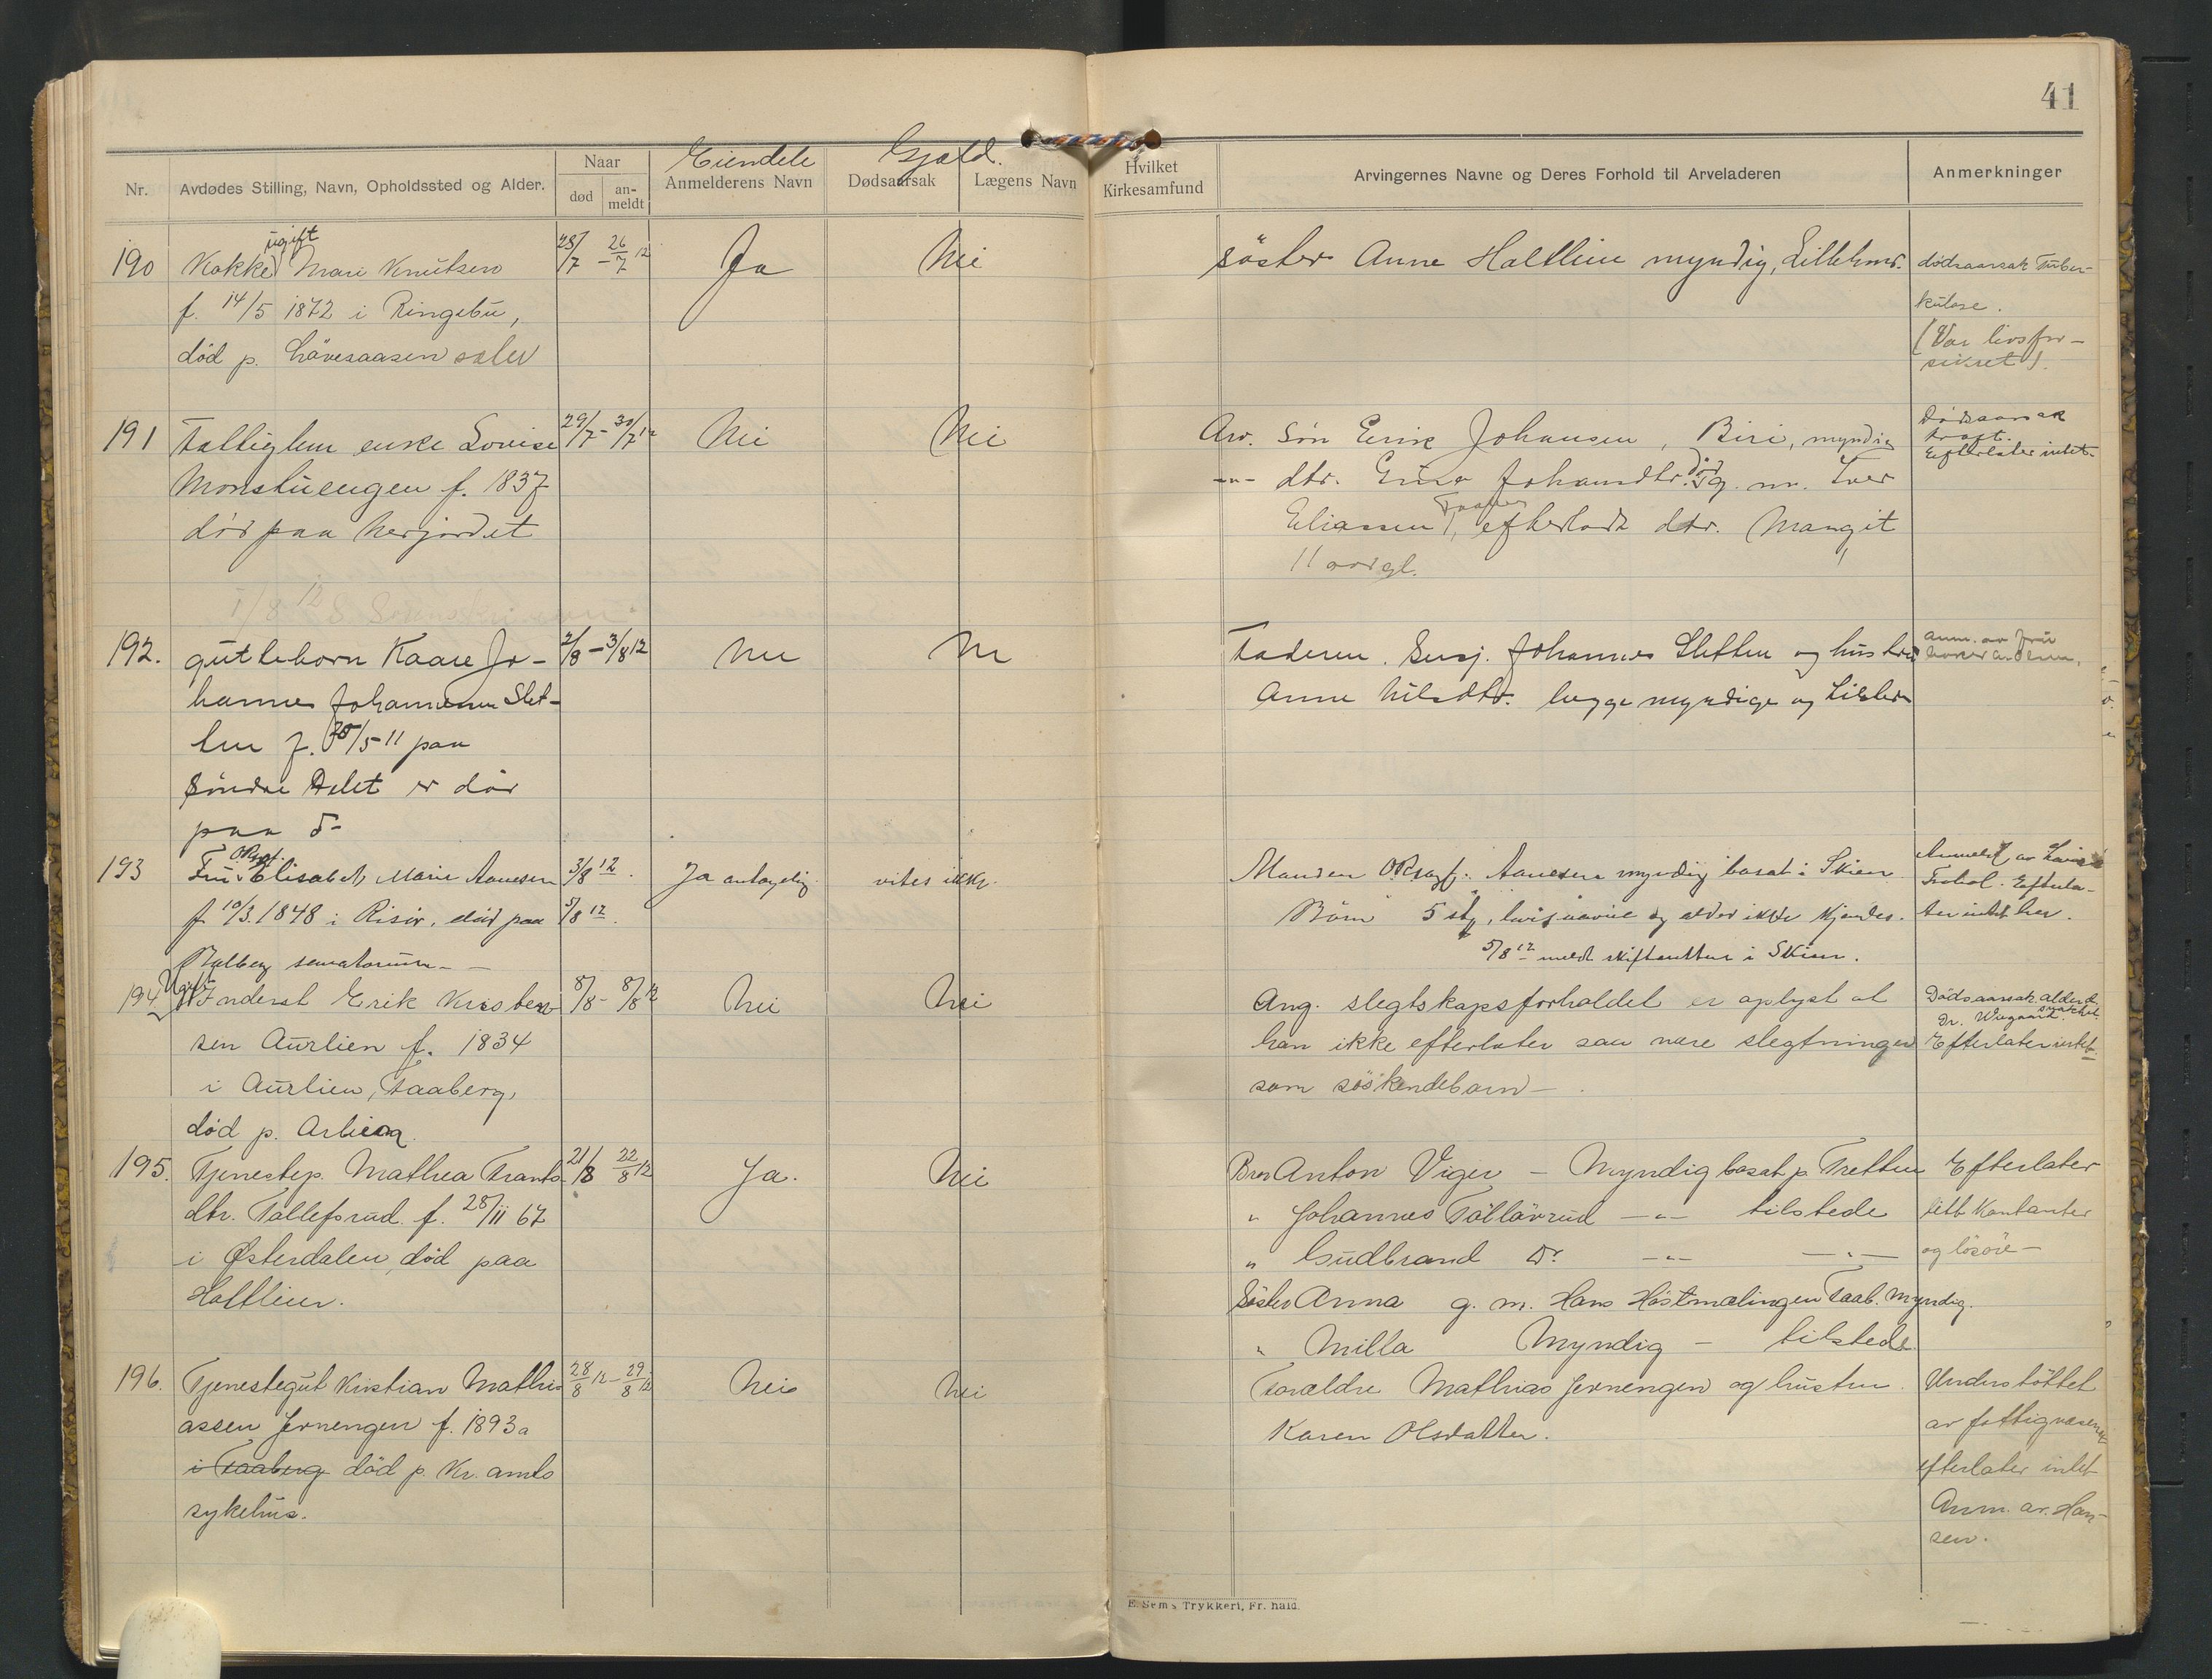 41
Eiendele Gjæld.
Nr. Avdødes Stilling, Navn, Opholdssted og Alder. Naar død an-meldt Anmelderens Navn Dødsaarsak Lægens Navn Hvilket Kirkesamfund Arvingernes Navne og Deres Forhold til Arveladeren Anmerkninger
190 Kokke ugift Mari Knutsen 25/7 - 26/7 12 Ja Nei söster Anne Haltlien myndig, Lillehmr. dødsaarsak Tuber-
f. 14/5 1872 i Ringebu, kulose.
død p. Lövesaasen sæter (Var livsfor-
sikret).
191 Fattiglem enke Lovise 29/7 - 30/7 12 Nei Nei Arv. Søn Erik Johansen, Biri, myndig Dødsaarsak
Monstuengen f. 1837 -"- dtr. Johansdtr. død g. m. Iver Efterlater intet
død paa Herjordet Eliassen Faaberg, efterladt dtr. Margit
11 aar gl.
192. guttebarn Kaare Jo- 2/8 - 3/8 12 Nei Nei Faderen. Johannes Sletten og hustru anm. av fru
hannes Johannesen Slet- Anne Nilsdtr. begge myndige og
ten f. 25/5-11 paa
Søndre er død
paa d-
193 Fru Elisabeth Marie Aanesen 3/8 12. Ja antagelig vites ikke. Manden Aanesen myndig bosat i Skien Anmeldt av
f. 10/3. 1848 i Risör, död paa 5/8 12. Börn 5 stk, hvis navne og alder ikke kjendes. Efterla-
Balberg sanatorium - 5/8 12 meldt skifteretten i Skien. ter intet her.
194 Ugift Inderst Erik Kristen- 8/8 - 8/8 12 Nei Nei Ang. slegtskapsforholdet er oplyst at Dödsaarsak alderd. svakhet.
sen Aurlien f. 1834 han ikke efterlater saa nære slegtninger Dr. Wiegaard. Efterlater intet.
i Aurlien, Faaberg, som söskendebarn -
död p. Arlien
195. Tjenestep. Mathea Frants- 21/8 22/8 12 Ja. Nei Bror Anton Viger - Myndig bosat p. Tretten Efterlater
dtr. Tollefsrud f. 28/11 67 " Johannes Töllövsrud -"- tilstede litt Kontanter
i Østerdalen död paa " Gudbrand Do -"- -"- og lösöre -
Haltlien. Söster Anna g. m. Hans Höstmælingen Faab. Myndig.
" Milla Myndig - tilstede
196. Tjenestegut Kristian Mathi- 28/8 12 - 29/8 12 Nei Nei Forældre Mathias Jernengen og hustru Understöttet
assen Jernengen f. 1893 Karen Olsdatter. av fattigvæsenet
i Faaberg död p. Kr. amts efterlater intet
sykehus. Anm. av. Han-
sen.
E. Sem's Trykkeri, Fr. hald.